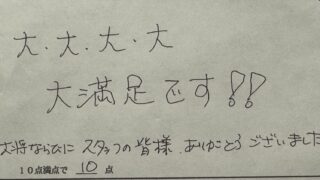 大・大・大・大
大満足です!!
大将ならびにスタッフの皆様、ありがとうございました
10点満点で 10 点